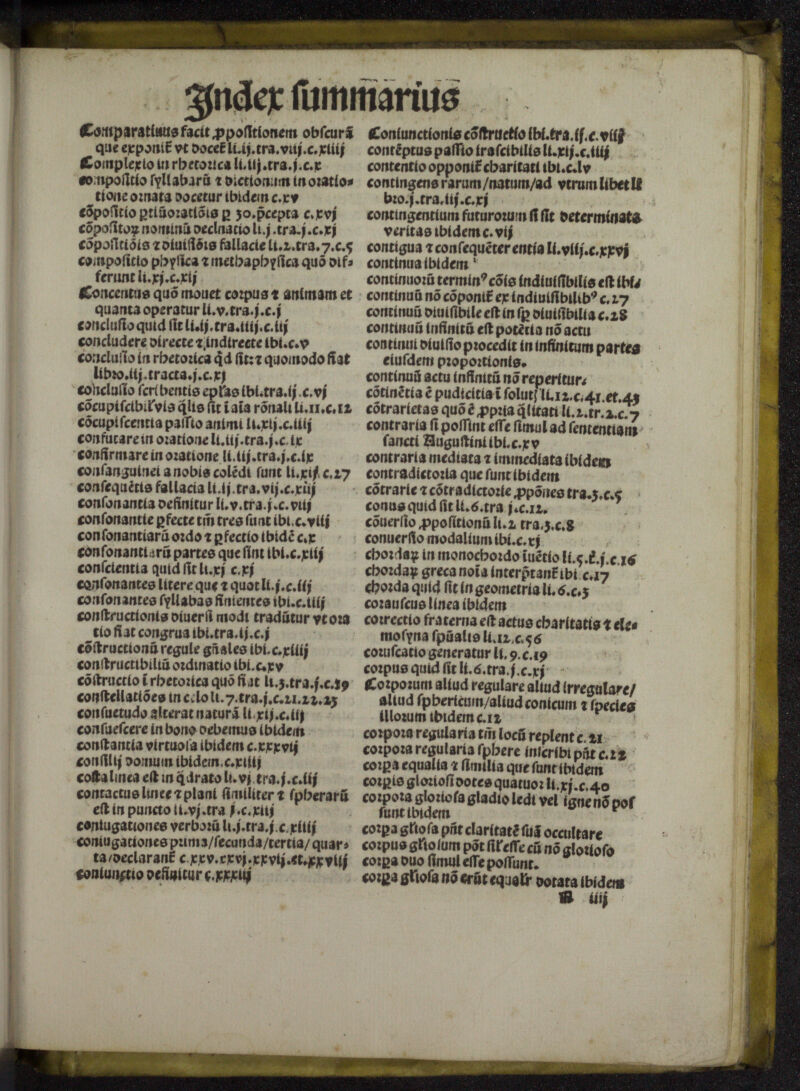 Index summarius
Comparatiuus facit ꝓpositionem obscurã
que exponit᷑ vt docet᷑ li.ij.tra.viij.c.xiiij
Complexio in rhetorica li.iij.tra.j.c.x
cõpositio syllabarũ ⁊ dictionum in oratio⸗
tione ornata docetur ibidem c.xv
cõpositio priũoratiõis ꝑ 30.p̃cepta c.xvj
cõpositoꝝ nominũ declinatio li.j.tra.j.c.xj
cõpositiõis ⁊ diuisiõis fallacie li.2.tra.7.c.5
compositio physica ⁊ methaphysica quõ dif⸗
ferunt li.xj.c.xij
Concentus quõ mouet corpus ⁊ animam et
quanta operatur li.v.tra.j.c.j
conclusio quid sit li.ij.tra.iiij.c.iij
concludere directe ⁊ indirecte ibi.c.v
conclusio in rhetorica qd sit: ⁊ quomodo fiat
libro.iij.tracta.j.c.xj
conclusio scribentis epĺas ibi.tra.ij.c.vj
cõcupiscibiĺvis q̃lis sit ĩ aĩa rõnali li.11.c.12
cõcupiscentia passio animi li.xij.c.iiij
confutare in oratione li.iij.tra.j.c.ix
confirmare in oratione li.iij.tra.j.c.ix
consanguinei a nobis colẽdi sunt li.xij.c.27
consequẽtis fallacia li.ij.tra.vij.c.xiij
consonantia definitur li.v.tra.j.c.viij
consonantie ꝑfecte tm̃ tres sunt ibi.c.viij
consonantiarũ ordo ⁊ ꝑfectio ibidẽ c.x
consonantiarũ partes que sint ibi.c.xiij
conscientia quid sit li.xj c.xj
consonantes litere que ⁊ quot li.j.c.iij
consonantes syllabas finientes ibi.c.iiij
constructionis diuersi modi tradũtur vt ora
tio fiat congrua ibi.tra.ij.c.j
cõstructionũ regule gñales ibi.c.xiiij
constructibiliũ ordinatio ibi.c.xv
cõstructio ĩ rhetorica quõ fiat li.3.tra.j.c.19
constellatiões in celo li.7.tra.j.c.21.22.23
consuetudo alterat naturã li.xij.c.iij
consuescere in bono debemus ibidem
constantia virtuosa ibidem c.xxxvij
consilij donum ibidem.c.xciiij
costa linea est in q̃drato li.vj tra.j.c.iij
contactus linee ⁊ plani similiter ⁊ spherarũ
est in puncto li.vj.tra j.c.xiij
coniugationes verborũ li.j.tra.j.c.xiiij
coniugationes prima/secunda/tertia/quar⸗
ta/declarant᷑ c.xxv.xxvj.xxvij.et.xxviij
coniunctio definitur c.xxxiij
Coniunctionis cõstructio ibi.tra.ij.c.viij
contẽptus passio irascibilis li.xij.c.iiij
contentio opponit᷑ charitati ibi.c.lv
contingens rarum/natum/ad vtrum libet li
bro.j.tra.iij.c.xj
contingentium futurorum si sit determinata
veritas ibidem c.vij
contigua ⁊ consequẽter entia li.viij.c.xxvj
continua ibidem
continuorũ terminꝰ cõis indiuisibilis est ibi⸗
continuũ nõ cõponit᷑ ex indiuisibilibꝰ c.27
continuũ diuisibile est in sp̱ diuisibilia c.28
continuũ infinitũ est potẽtia nõ actu
continui diuisio procedit in infinitum partes
eiusdem proportionis.
continuũ actu infinitũ nõ reperitur⸗
cõtinẽtia ẽ pudicitia ĩ solutꝭ li.12.c.41.et.43
cõtrarietas quõ ẽ ꝓpria q̃litati li.2.tr.2.c.7
contraria si possunt esse simul ad sententiam
sancti Augustini ibi.c.xv
contraria mediata ⁊ immediata ibidem
contradictoria que sunt ibidem
cõtrarie ⁊ cõtradictorie ꝓpõnes tra.3.c.5
conus quid sit li.6.tra j.c.12.
cõuersio ꝓpositionũ li.2 tra.3.c.8
conuersio modalium ibi.c.xj
chordaꝝ in monochordo ĩuẽtio li.5.t̃.j.c.16
chordaꝝ greca noĩa interp̃tant᷑ ibi c.17
chorda quid sit in geometria li.6.c.3
coraufcus linea ibidem
correctio fraterna est actus charitatis ⁊ ele⸗
mosyna sp̃ualis li.12.c.56
coruscatio generatur li.9.c.19
corpus quid sit li.6.tra.j.c.xj
Corporum aliud regulare aliud irregulare/
aliud sphericum/aliud conicum ⁊ species
illorum ibidem c.12
corpora regularia tm̃ locũ replent c.21
corpora regularia sphere inscribi pñt c.22
corpa equalia ⁊ similia que sunt ibidem
corpis gloriosi dotes quatuor li.xj.c.40
corpora gloriosa gladio ledi vel igne nõ pos
sunt ibidem
corpa gĺiosa pñt claritatẽ suã occultare
corpus gĺiosum põt siĺ esse cũ nõ glorioso
corpa duo simul esse possunt.
corpa gĺiosa nõ erũt equaĺr dotata ibidem
B iiij